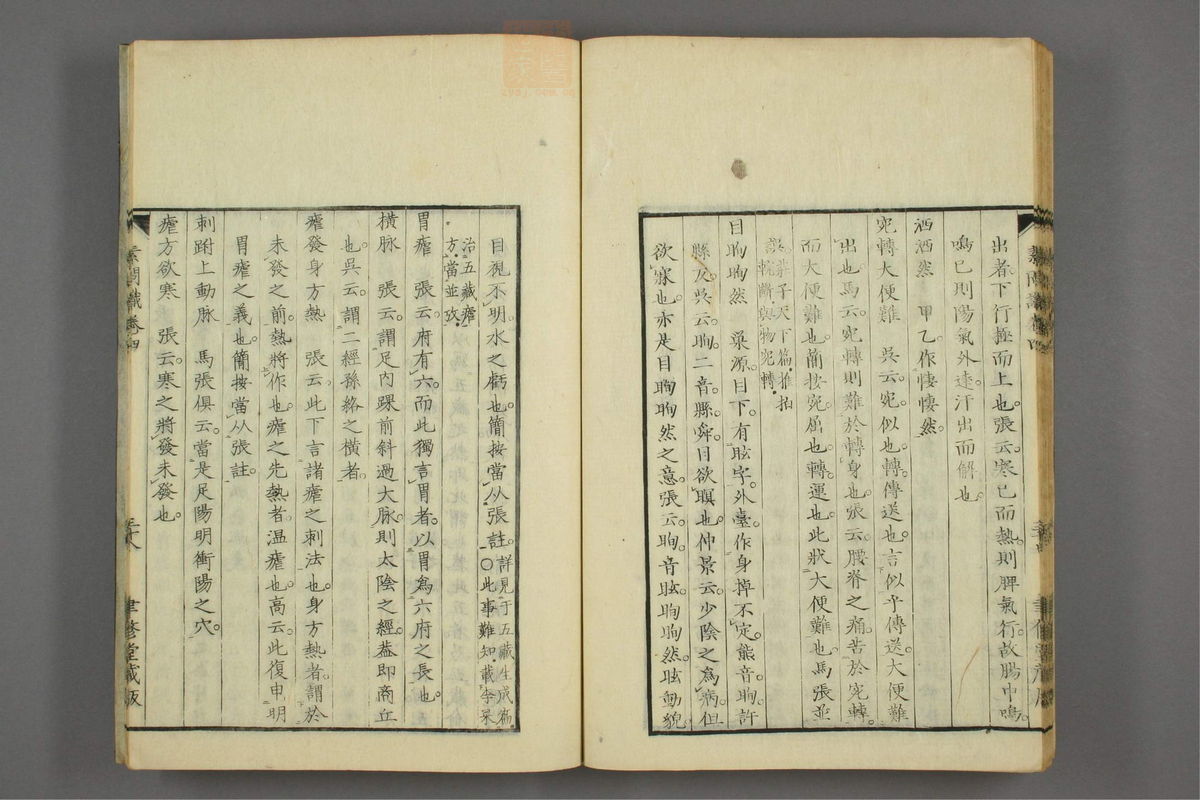 出者下行極而上也張云寒已而熱則脾氣行故腸中鳴
鳴已則陽氣外達汗出而解也
洒洒然　甲乙作悽悽然
宛轉大便難　吳云宛似也轉傳送也言似乎傳送大便難
出也馬云宛轉則難於轉身也張云腰脊之痛苦於宛轉
而大便難也簡按宛屈也轉運也此狀大便難也馬張並
誤莊子天下篇推拍
輐斷與物宛轉
目眴眴然　巢源目下有眩字外臺作身掉不定熊音眴許
縣反吳云眴二音縣舜目欲瞑也仲景云少陰之爲病但
欲寐也亦是目眴眴然之意張云眴音眩眴眴然眩動貌
目視不明水之虧也簡按當从張註詳見于五藏生成篇
○此事難知載李杲
治五藏瘧
方當並攷
胃瘧　張云府有六而此獨言胃者以胃爲六府之長也
橫脉　張云謂足內踝前斜過大脉則太陰之經葢即商丘
也吳云謂二經孫絡之橫者
瘧發身方熱　張云此下言諸瘧之刺法也身方熱者謂於
未發之前熱將作也瘧之先熱者温瘧也高云此復申明
胃瘧之義也簡按當从張註
刺跗上動脉　馬張俱云當是足陽明衝陽之穴
瘧方欲寒　張云寒之將發未發也
素問識卷四
三十八
聿修堂藏版